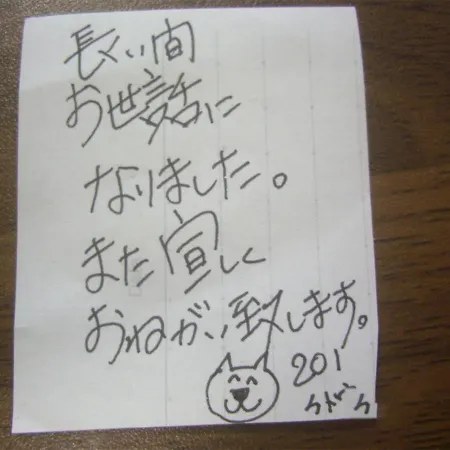 長い間
お世話に
なりました。
また宜しく
おねがい致します。
201